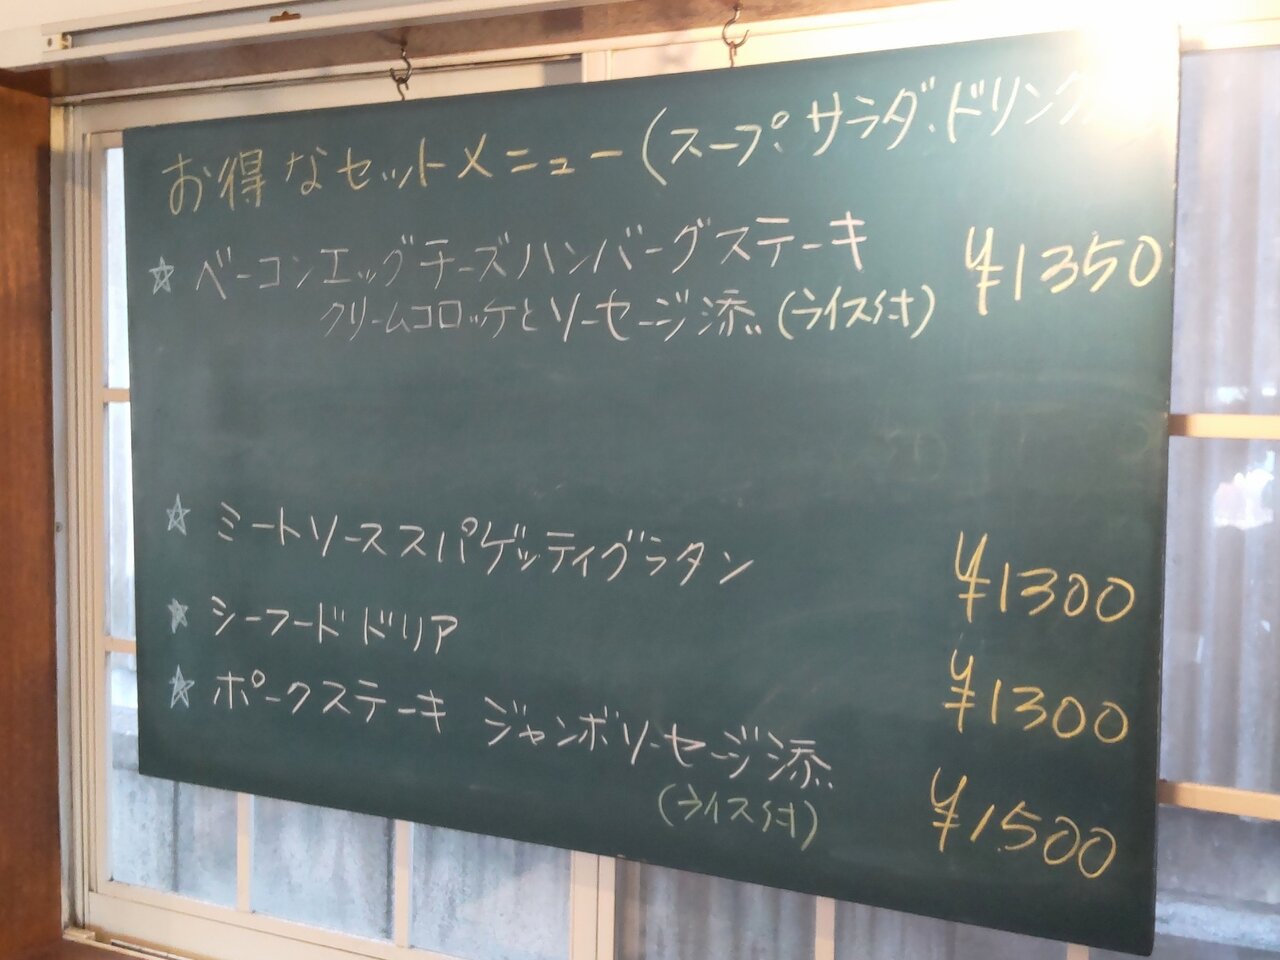 お得なセットメニュー(スープ、サラダ、ドリンク
☆ ベーコンエッグチーズハンバーグステーキ ¥1350
クリームコロッケとソーセージ添(ライス付)
☆ ミートソーススパゲッティグラタン ¥1300
☆ シーフードドリア ¥1300
☆ ポークステーキ ジャンボソーセージ添 ¥1500
(ライス付)